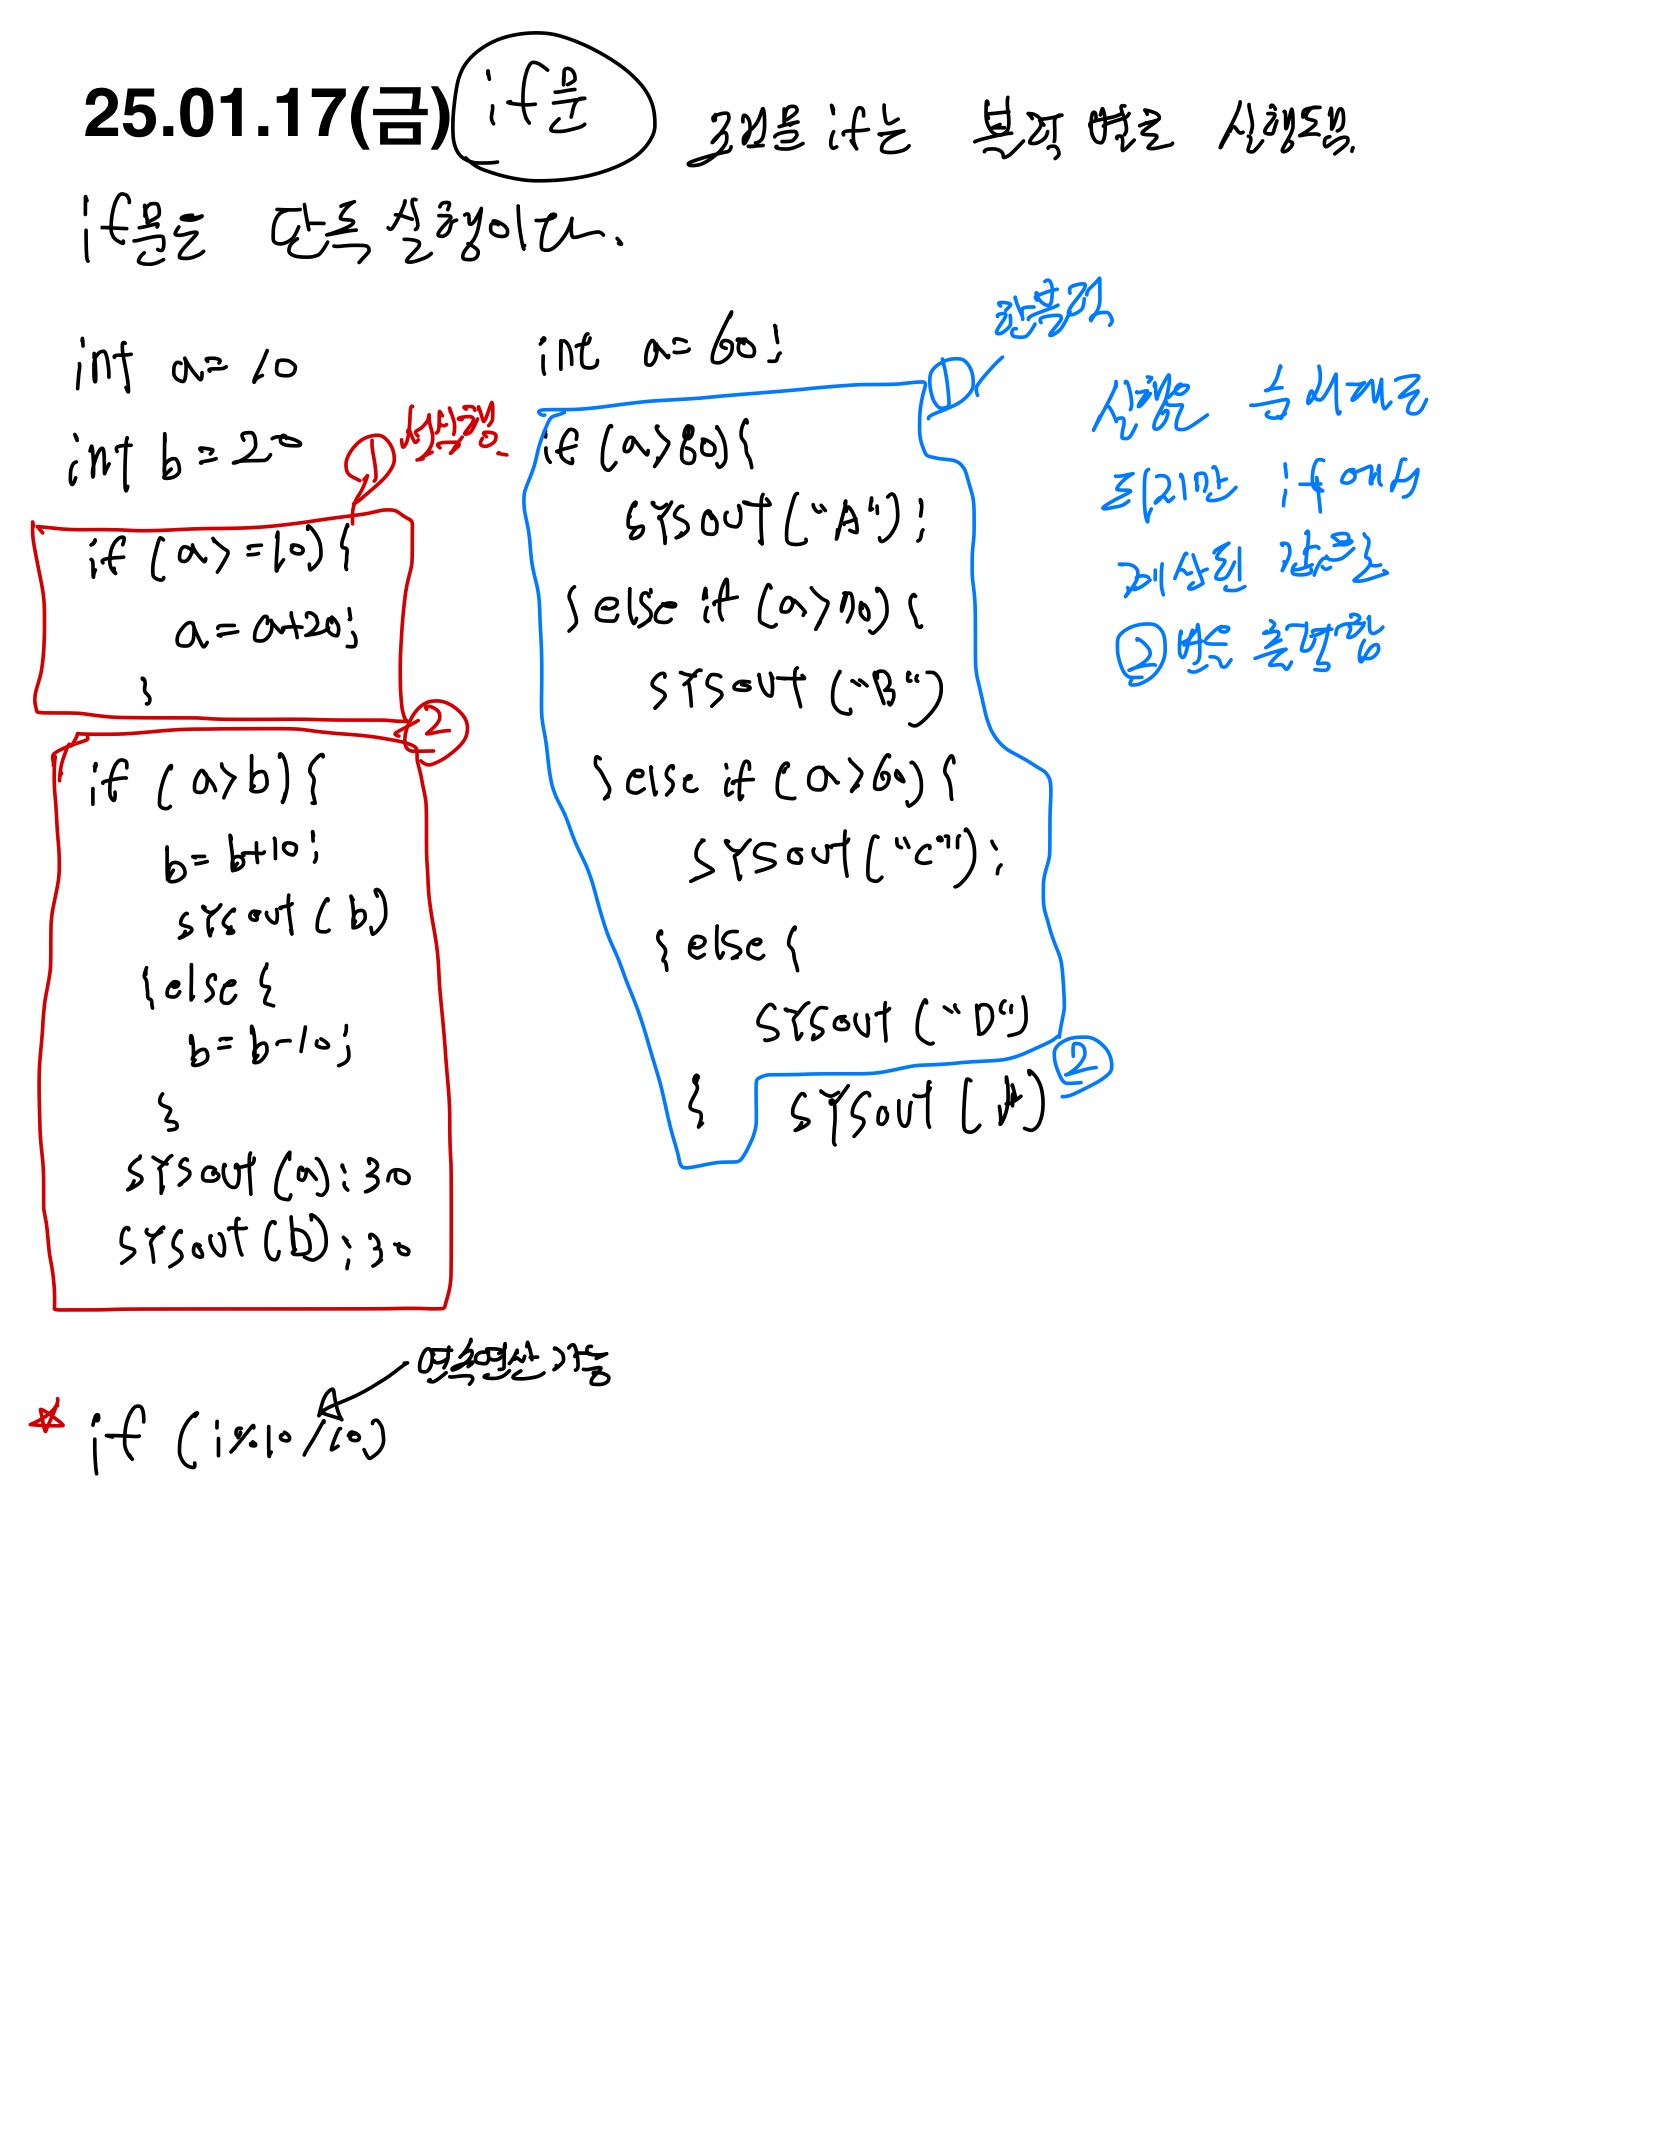 25.01.17(금) if문
if는 실행됨.
if문은 단독 실행이다.
int a= 10
int b = 20
①
if (a>=10) {
a= a+20;
}
②
if (a>b) {
b= b+10;
sysout (b)
} else {
b= b-10;
}
sysout (a); 30
sysout (b); 30
☆ if (i%10/10)
연속연산 가능
int a= 60;
①
if (a>80) {
sysout ("A");
} else if (a>70) {
sysout ("B")
} else if (a>60) {
sysout ("C");
} else {
sysout ("D")
}
sysout (A)
②
실행은 순서대로
되지만 if에서
계산된 값으로
②번을 출력함